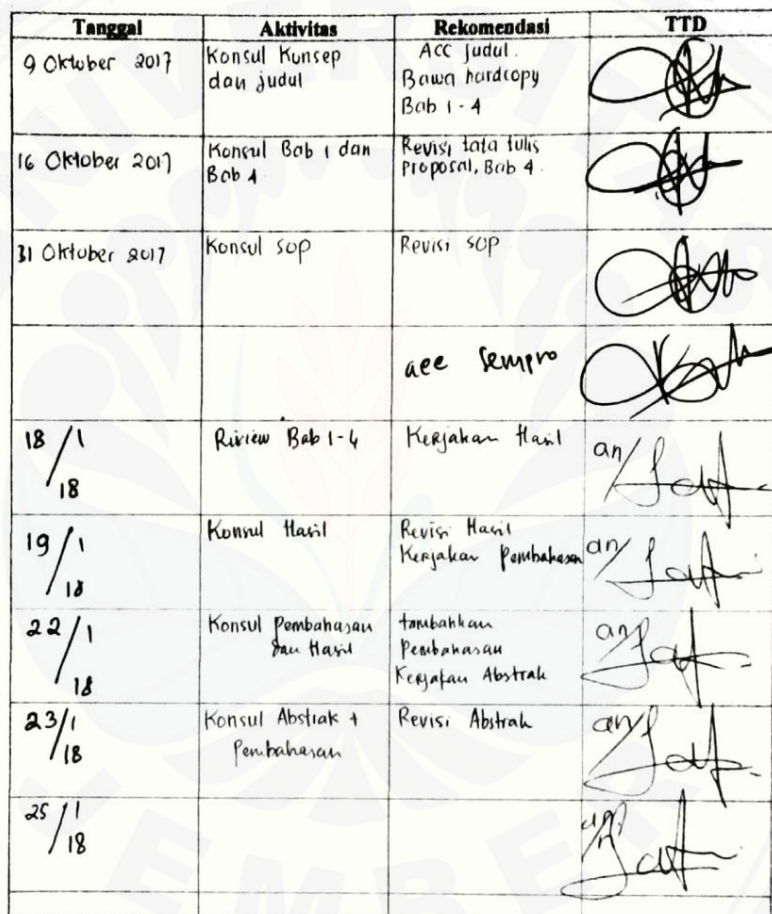 Tanggal Aktivitas Rekomendasi TTD
9 Oktober 2017 Konsul Konsep Acc judul.
dan judul Bawa hardcopy
Bab 1 - 4
16 Oktober 2017 Konsul Bab 1 dan Revisi tata tulis
Bab 4 proposal, Bab 4.
31 Oktober 2017 Konsul SOP Revisi SOP
acc Sempro
18/1/18 Riview Bab 1-4 Kerjakan Hasil an/
19/1/18 Konsul Hasil Revisi Hasil an/
Kerjakan Pembahasan
22/1/18 Konsul Pembahasan tambahkan an/
dan Hasil Pembahasan
Kerjakan Abstrak
23/1/18 Konsul Abstrak + Revisi Abstrak an/
Pembahasan
25/1/18 an/
UNIVERSITAS
JEMBER